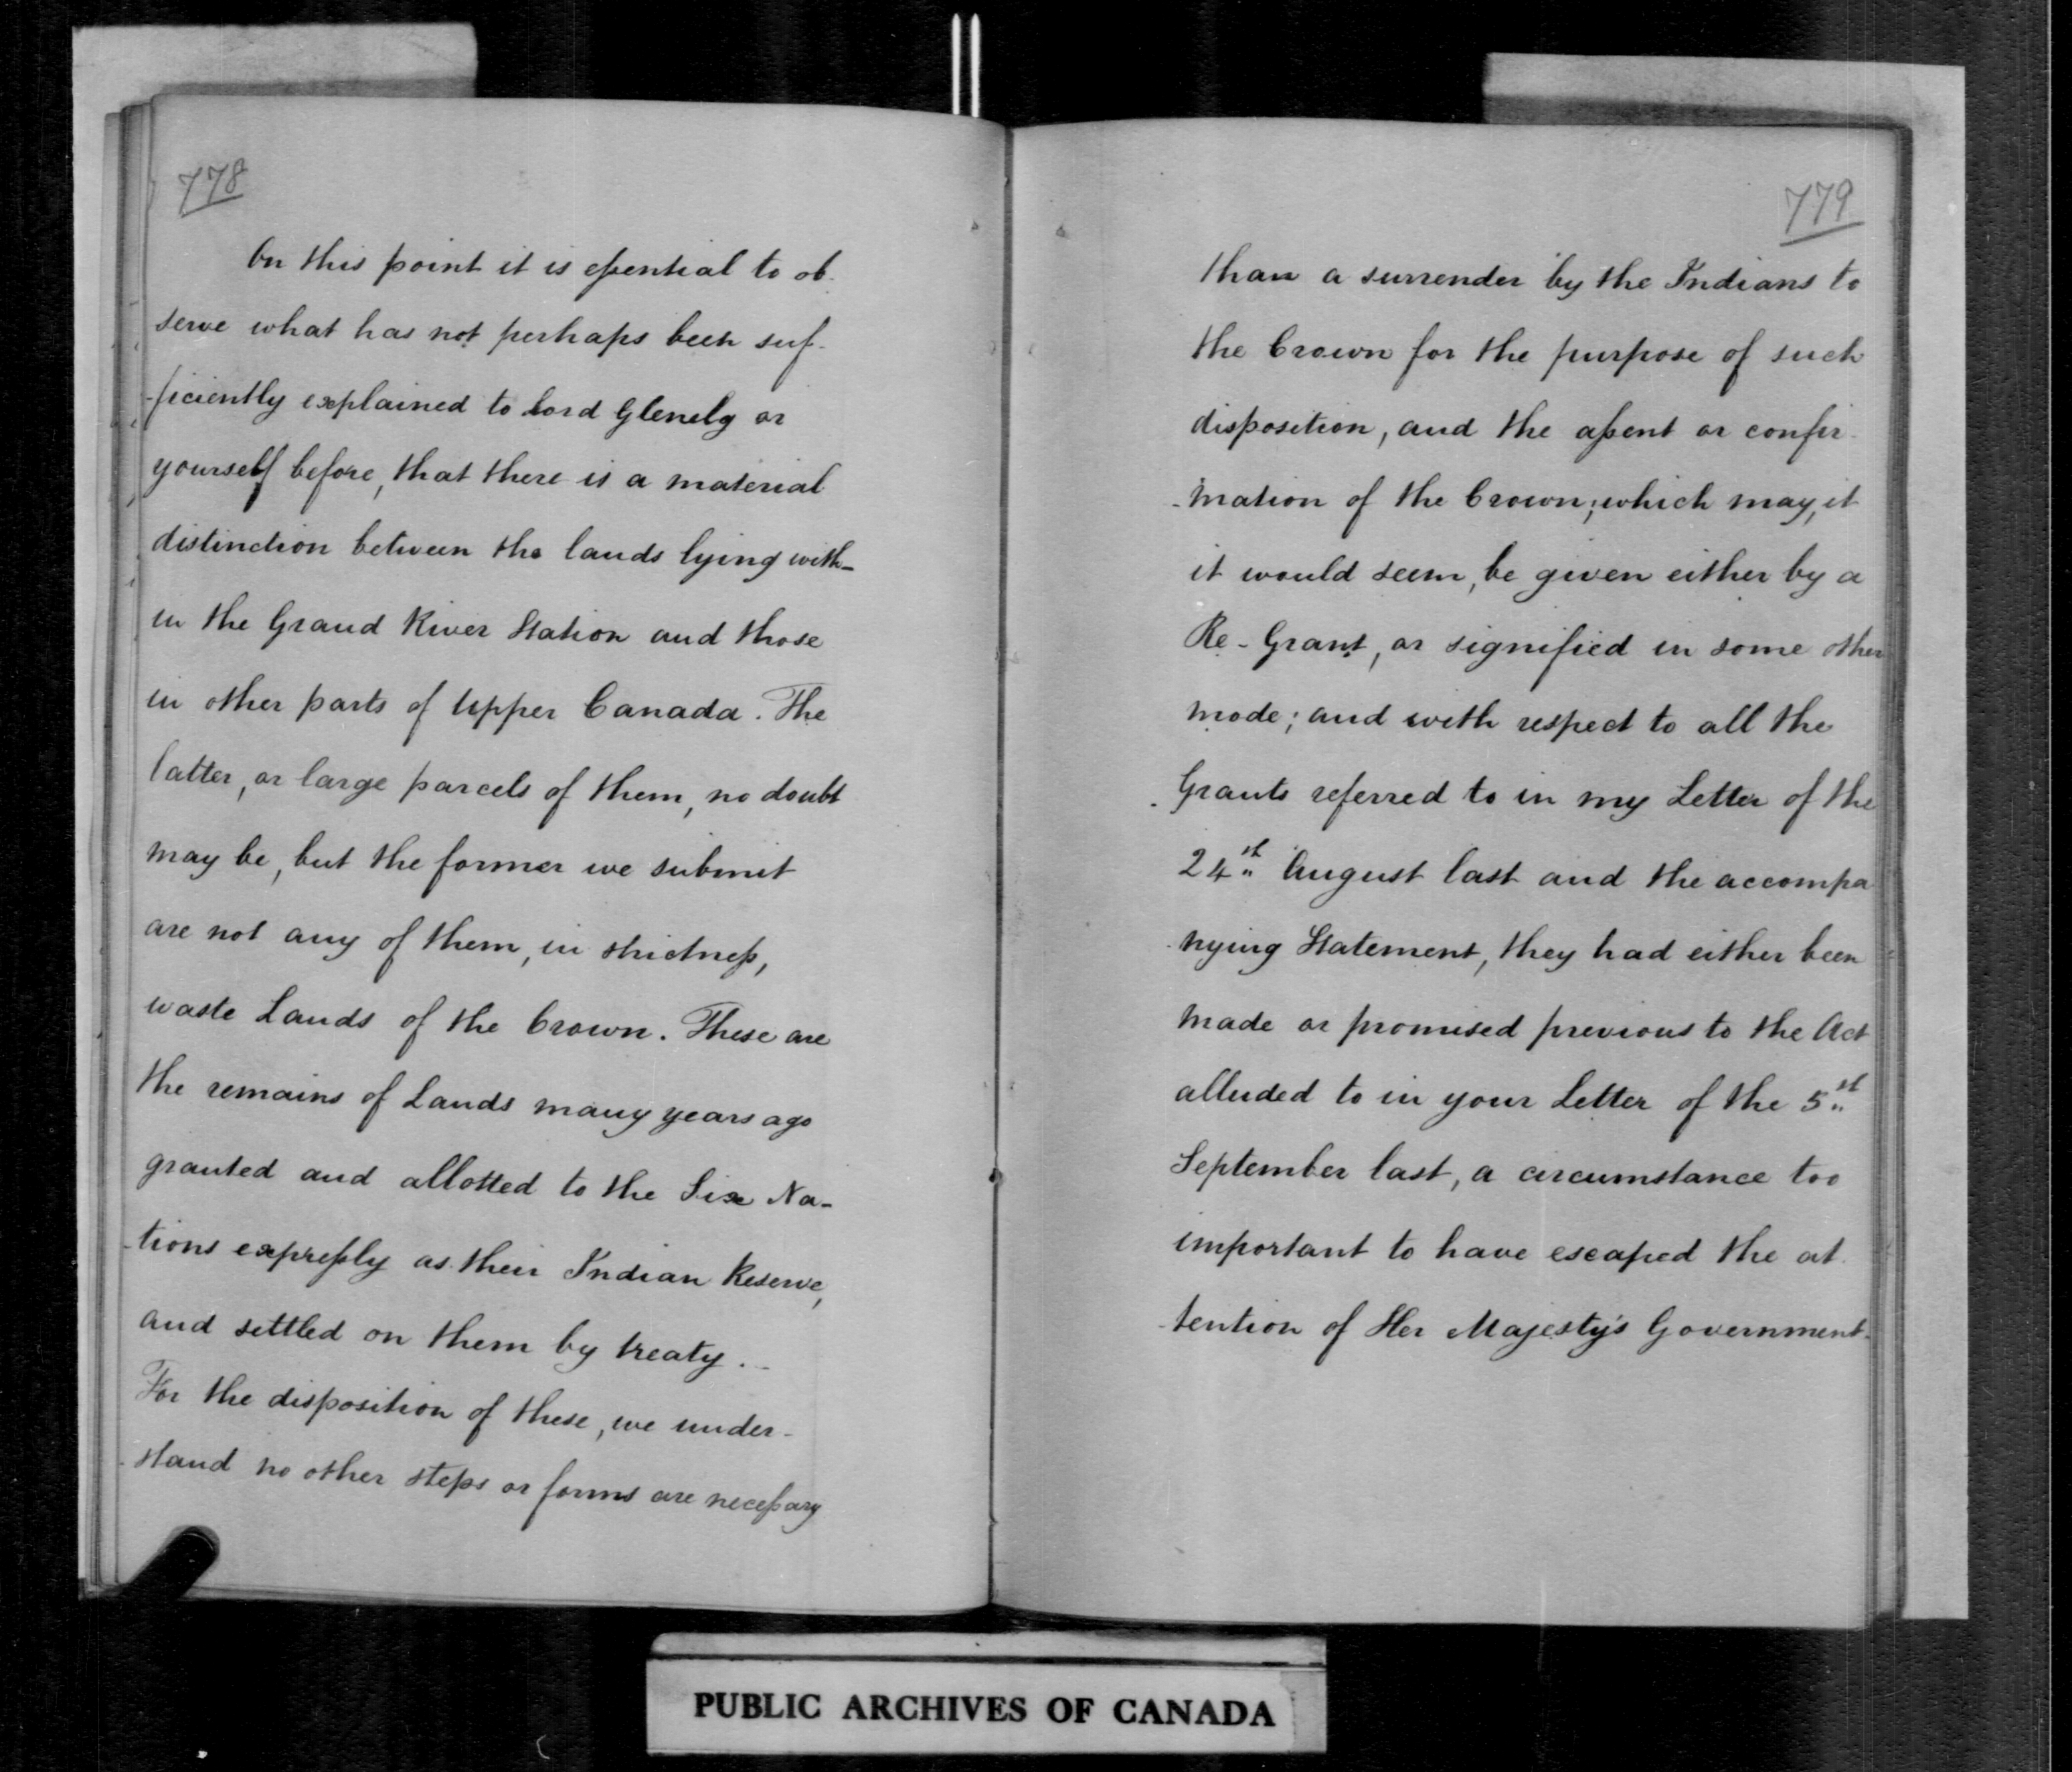 778
On this point it is essential to ob-
serve what has not perhaps been suf-
-ficiently explained to Lord Glenelg or
yourself before, that there is a material
distinction between the lands lying with-
in the Grand River Station and those
in other parts of Upper Canada. The
latter, or large parcels of them, no doubt
may be, but the former we submit
are not any of them, in strictness,
waste Lands of the Crown. These are
the remains of Lands many years ago
granted and allotted to the Six Na-
-tions expressly as their Indian Reserve,
and settled on them by treaty. -
For the disposition of these, we under-
-stand no other steps or forms are necessary
779
than a surrender by the Indians to
the Crown for the purpose of such
disposition, and the assent or confir-
-mation of the Crown; which may, it
it would seem, be given either by a
Re-Grant, or signified in some other
mode; and with respect to all the
Grants referred to in my Letter of the
24th August last and the accompa
-nying Statement, they had either been
made or promised previous to the Act
alluded to in your Letter of the 5th
September last, a circumstance too
important to have escaped the at-
-tention of Her Majesty's Government.
PUBLIC ARCHIVES OF CANADA